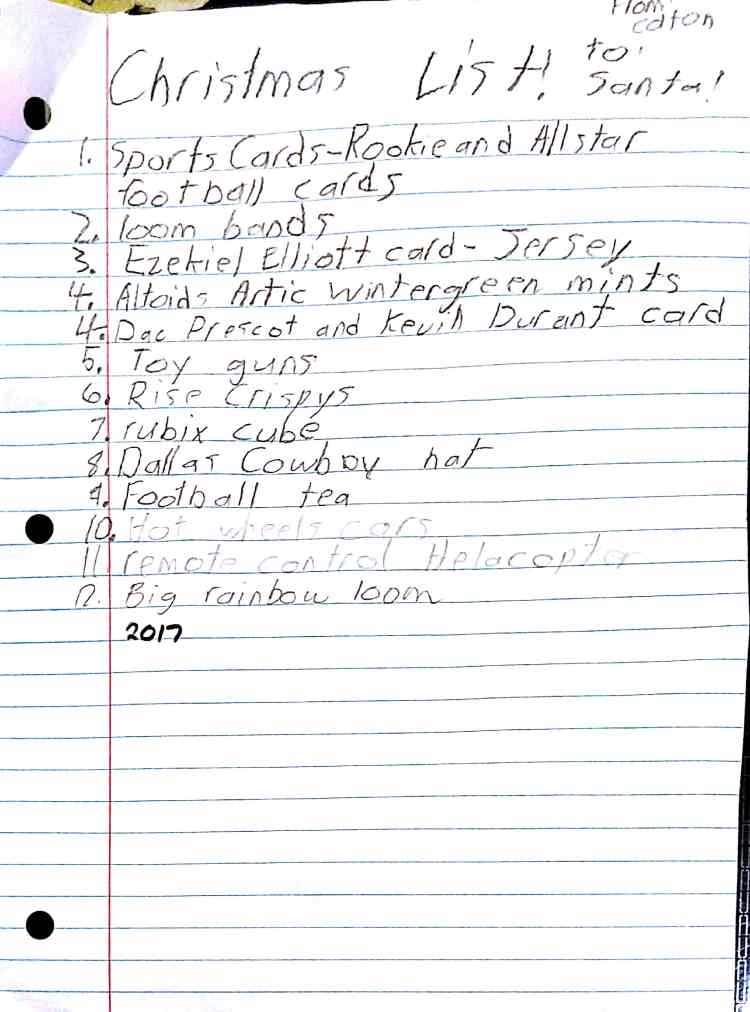 From
colton
to:
Santa!
Christmas List!
1. Sports Cards-Rookie and Allstar
football cards
2. loom bands
3. Ezekiel Elliott card- Jersey
4. Altoids Artic wintergreen mints
4. Dac Prescot and Kevin Durant card
5. Toy guns
6. Rise crispys
7. rubix cube
8. Dallas Cowboy hat
9. Football tea
10. Hot wheels cars
11 remote control Helacopter
12. Big rainbow loom
2017